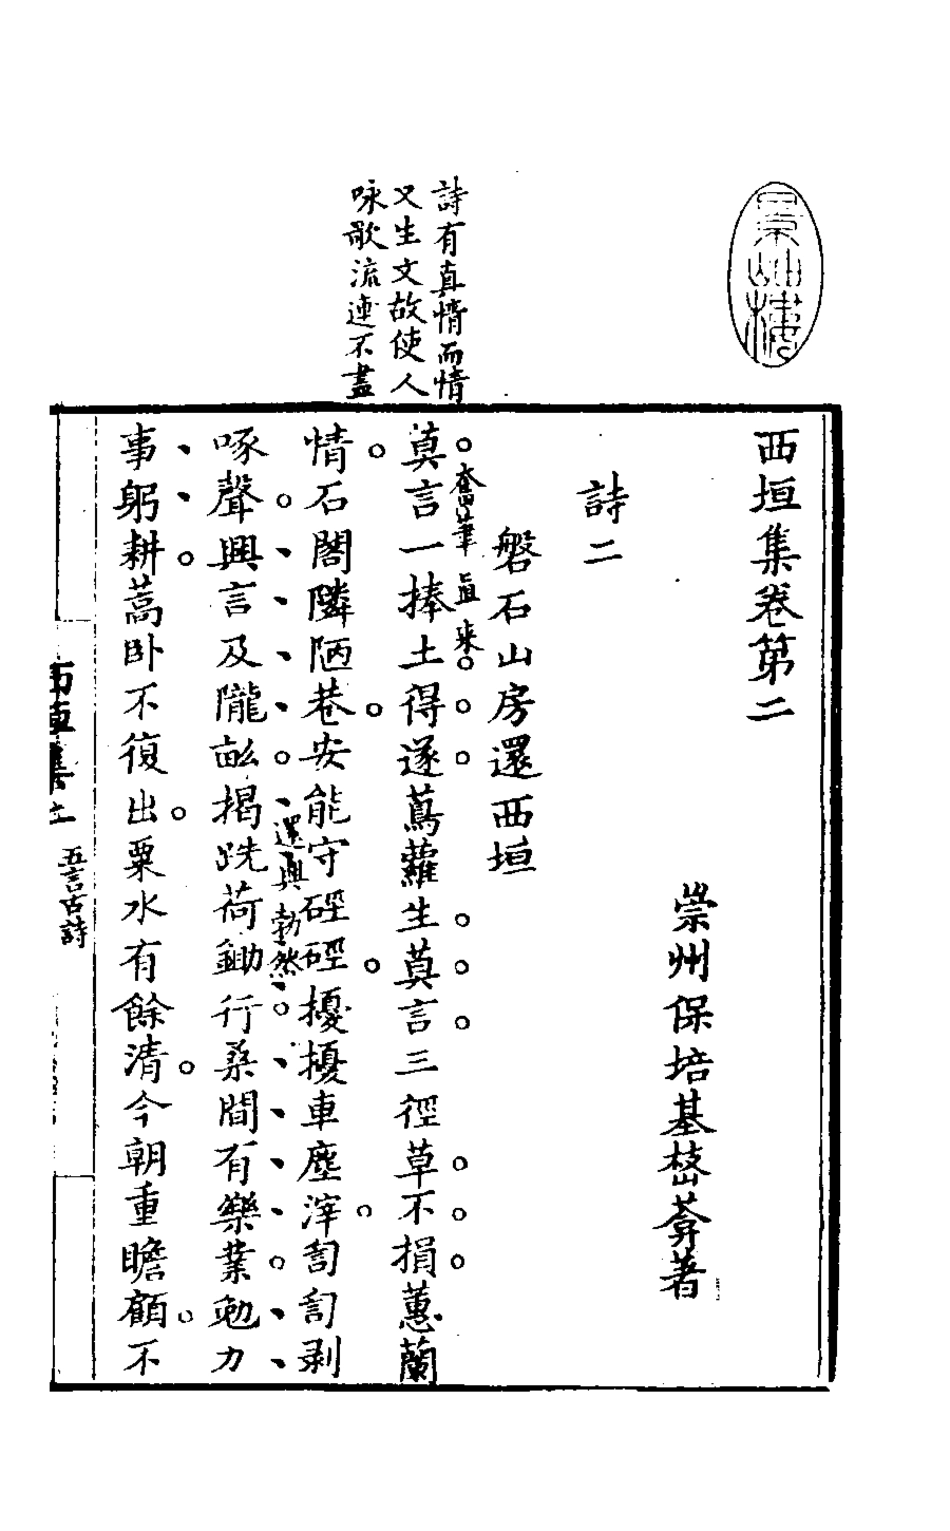 景岫樓
西垣集卷第二
崇州保培基㟳葊著
詩二
磐石山房還西垣
奮筆直來
莫言一捧土得遂蔦蘿生莫言三徑草不損蕙蘭
情石閣隣陋巷安能守硜硜擾擾車塵滓訇訇剥
還興勃然
啄聲興言及隴畝揭跣荷鋤行桑間有樂業勉力
事躬耕蒿卧不復出粟水有餘清今朝重瞻顧不
詩有真情而情
又生文故使人
咏歌流連不盡
西垣集
五言古詩